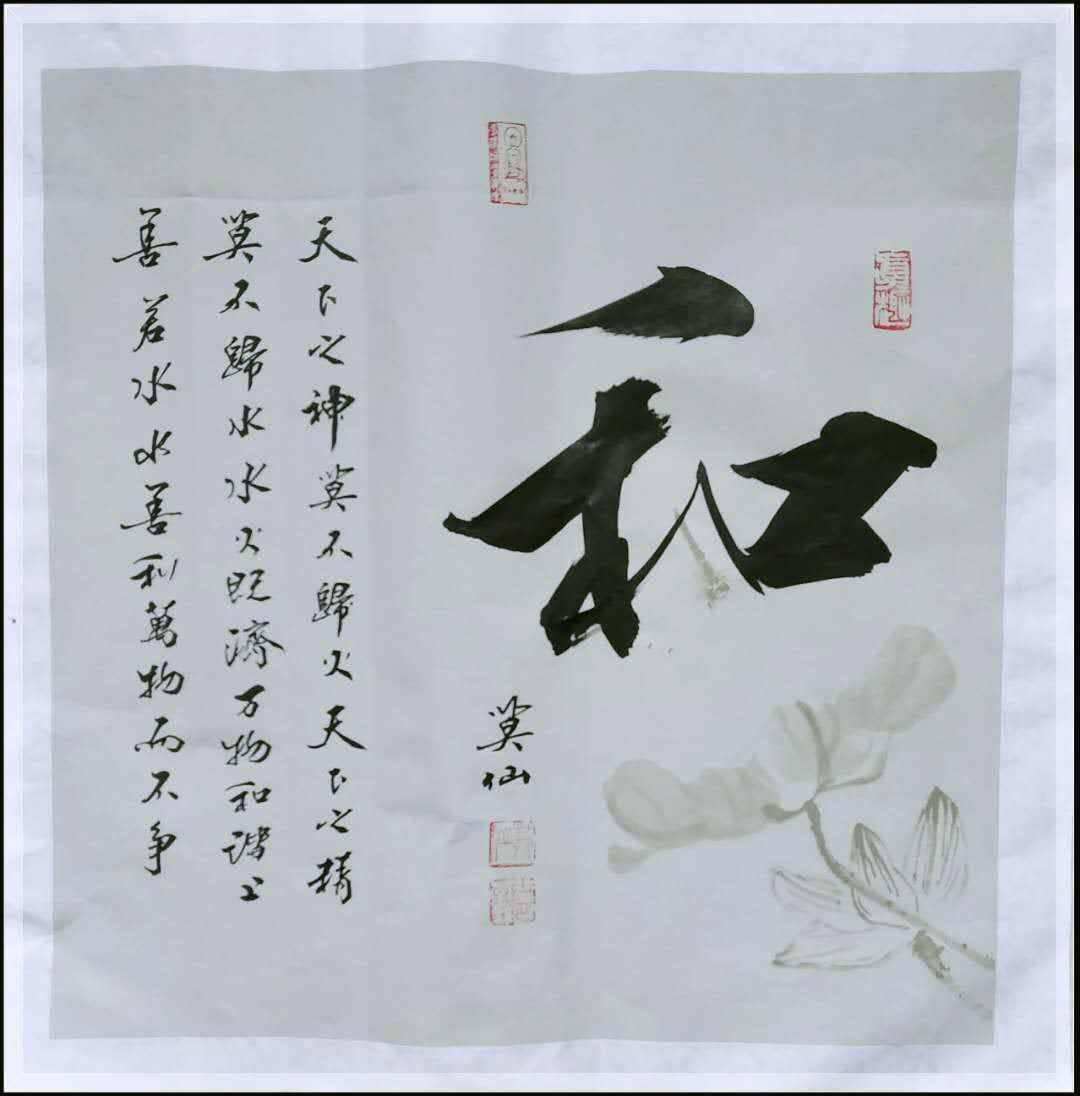 和
莫仙
天下之神莫不歸火天下之精
莫不歸水水火既濟万物和谐上
善若水水善利萬物而不争